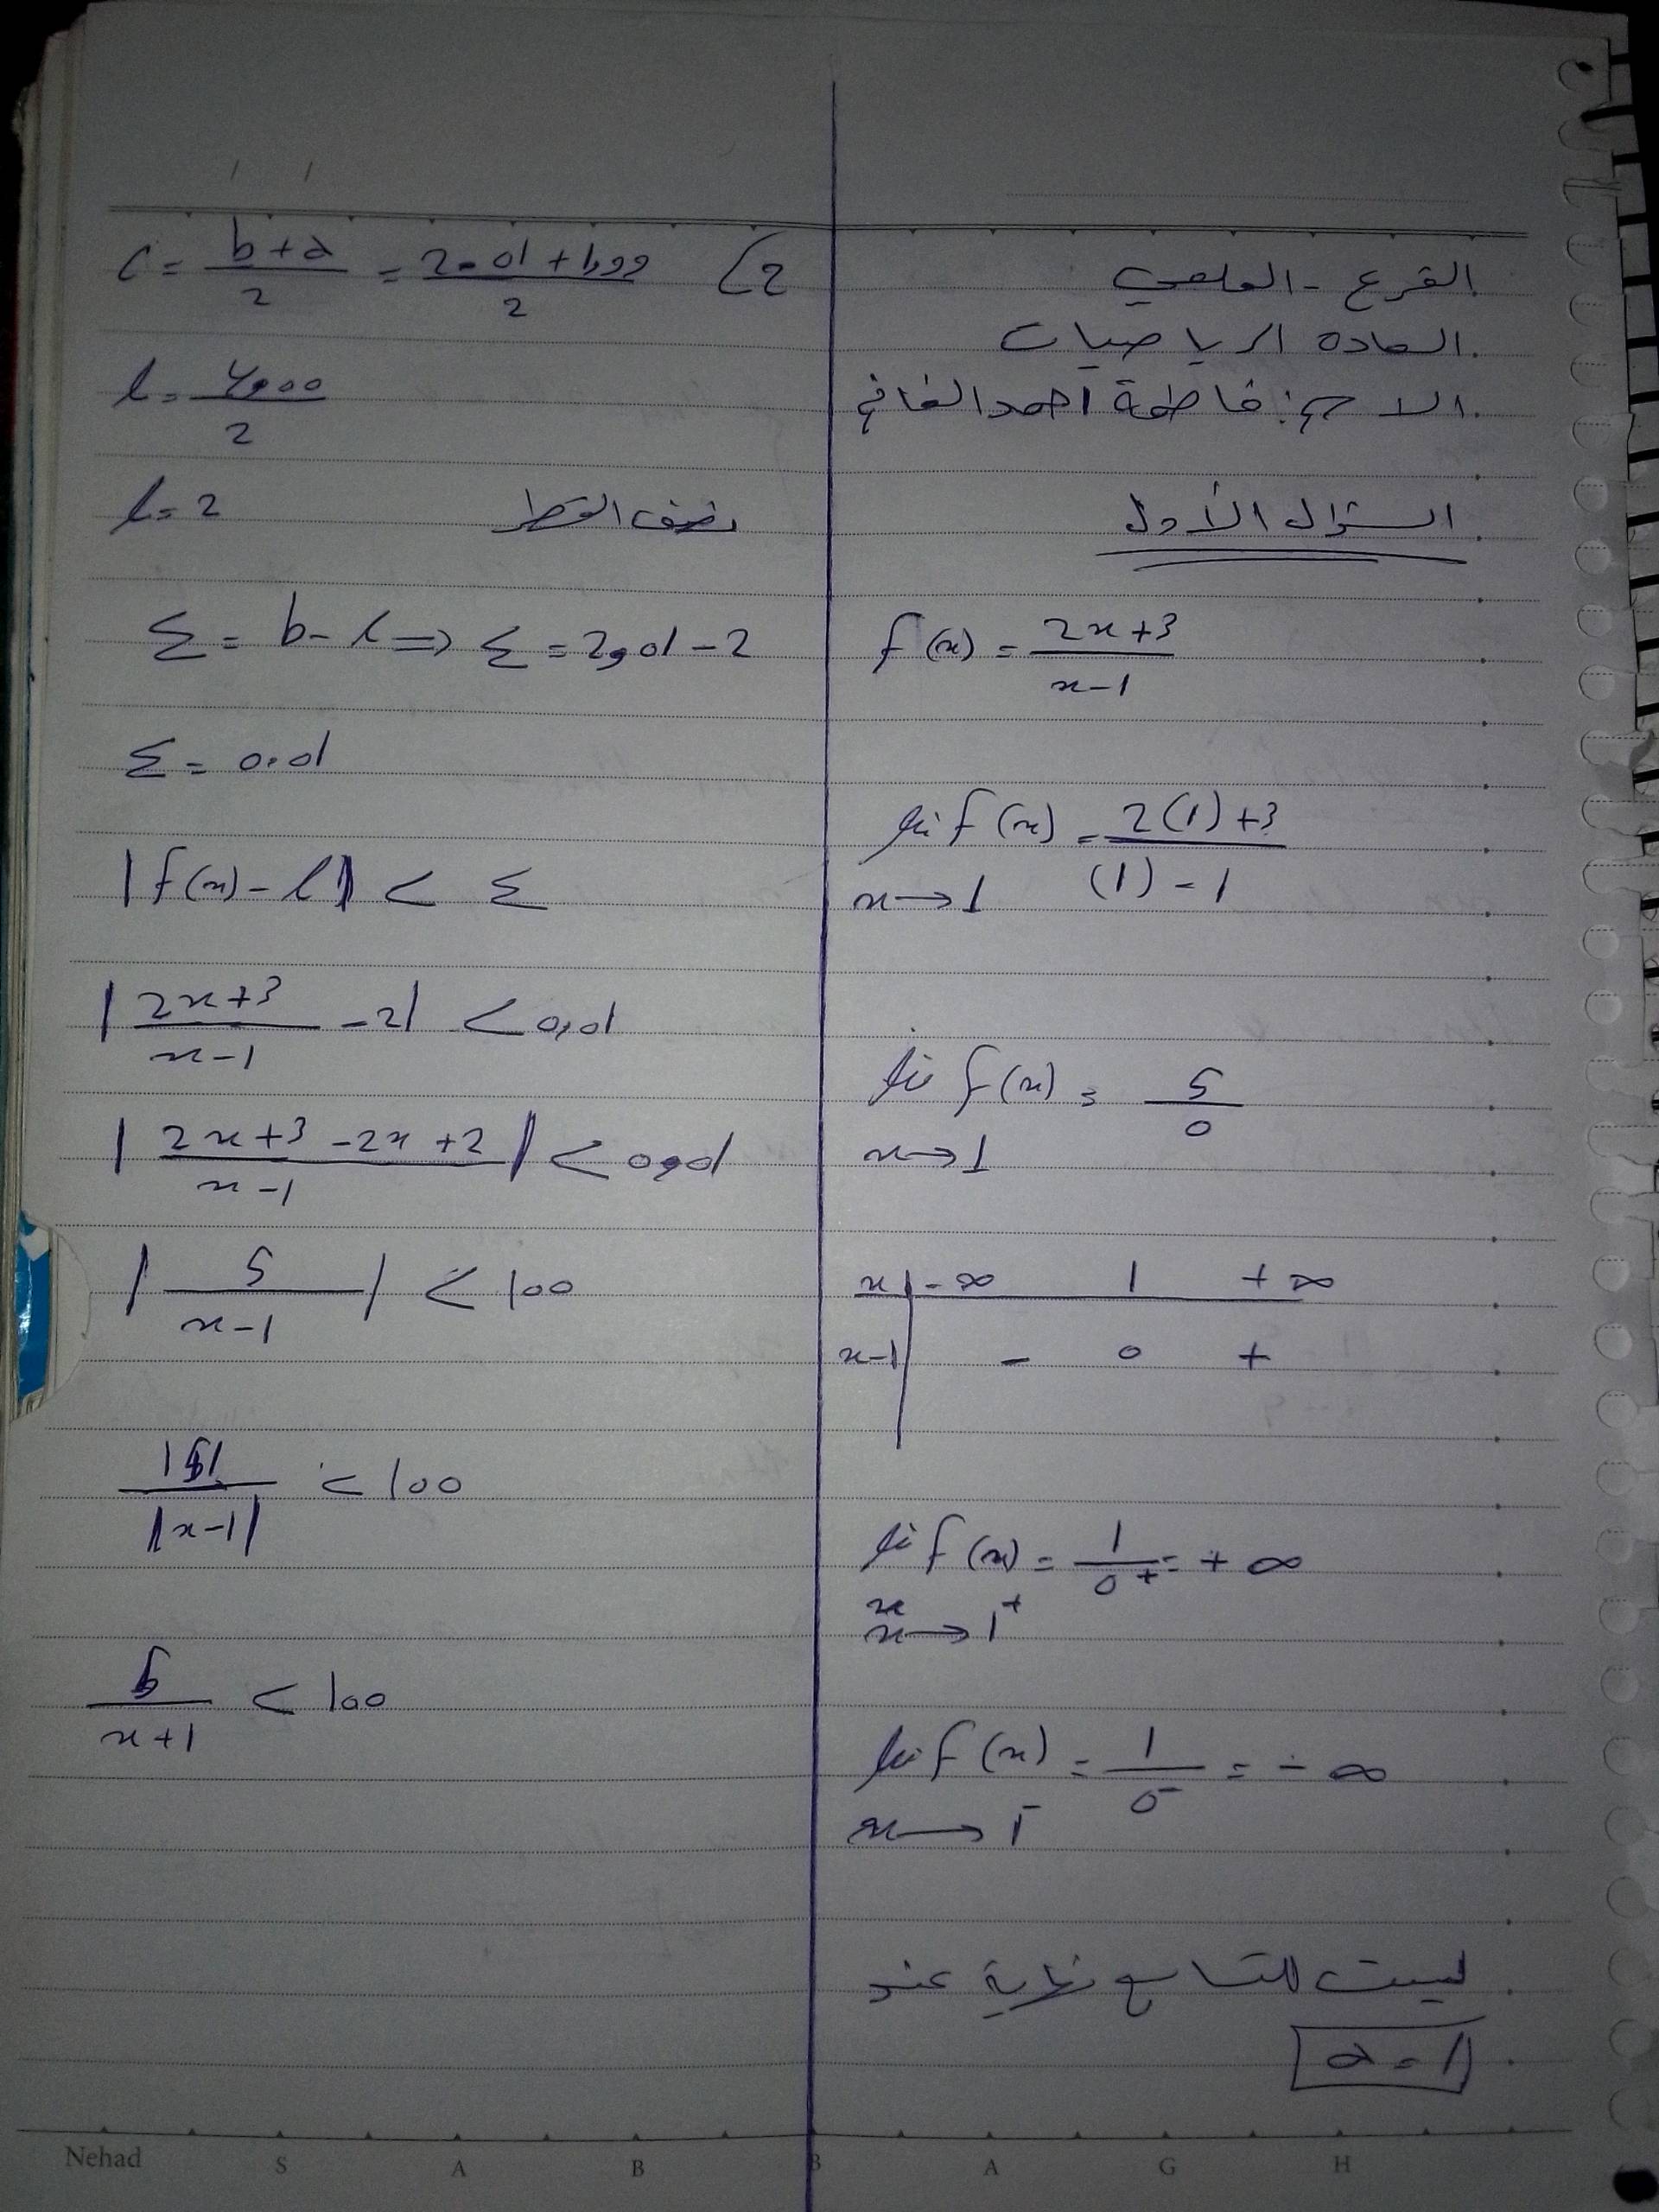 الفرع - العلمي
المادة الرياضيات
الاسم: فاطمة احمد
السؤال الأول
f(x) = \frac{2x+3}{x-1}
lim f(x) = \frac{2(1)+3}{(1)-1}
x→1
lim f(x) = \frac{5}{0}
x→1
x | -∞ 1 +∞
x-1 | - 0 +
lim f(x) = \frac{1}{0^+} = +∞
x→1^+
lim f(x) = \frac{1}{0^-} = -∞
x→1^-
ليست للتابع نهاية عند
a = 1
2) c = \frac{b+a}{2} = \frac{2.01+1,99}{2}
l = \frac{4,000}{2}
l = 2 نصف القطر
ε = b - l ⇒ ε = 2,01 - 2
ε = 0.01
|f(x) - l| < ε
|\frac{2x+3}{x-1} - 2| < 0,01
|\frac{2x+3-2x+2}{x-1}| < 0,01
|\frac{5}{x-1}| < 100
\frac{|5|}{|x-1|} < 100
\frac{5}{x+1} < 100
Nehad S A B B A G H